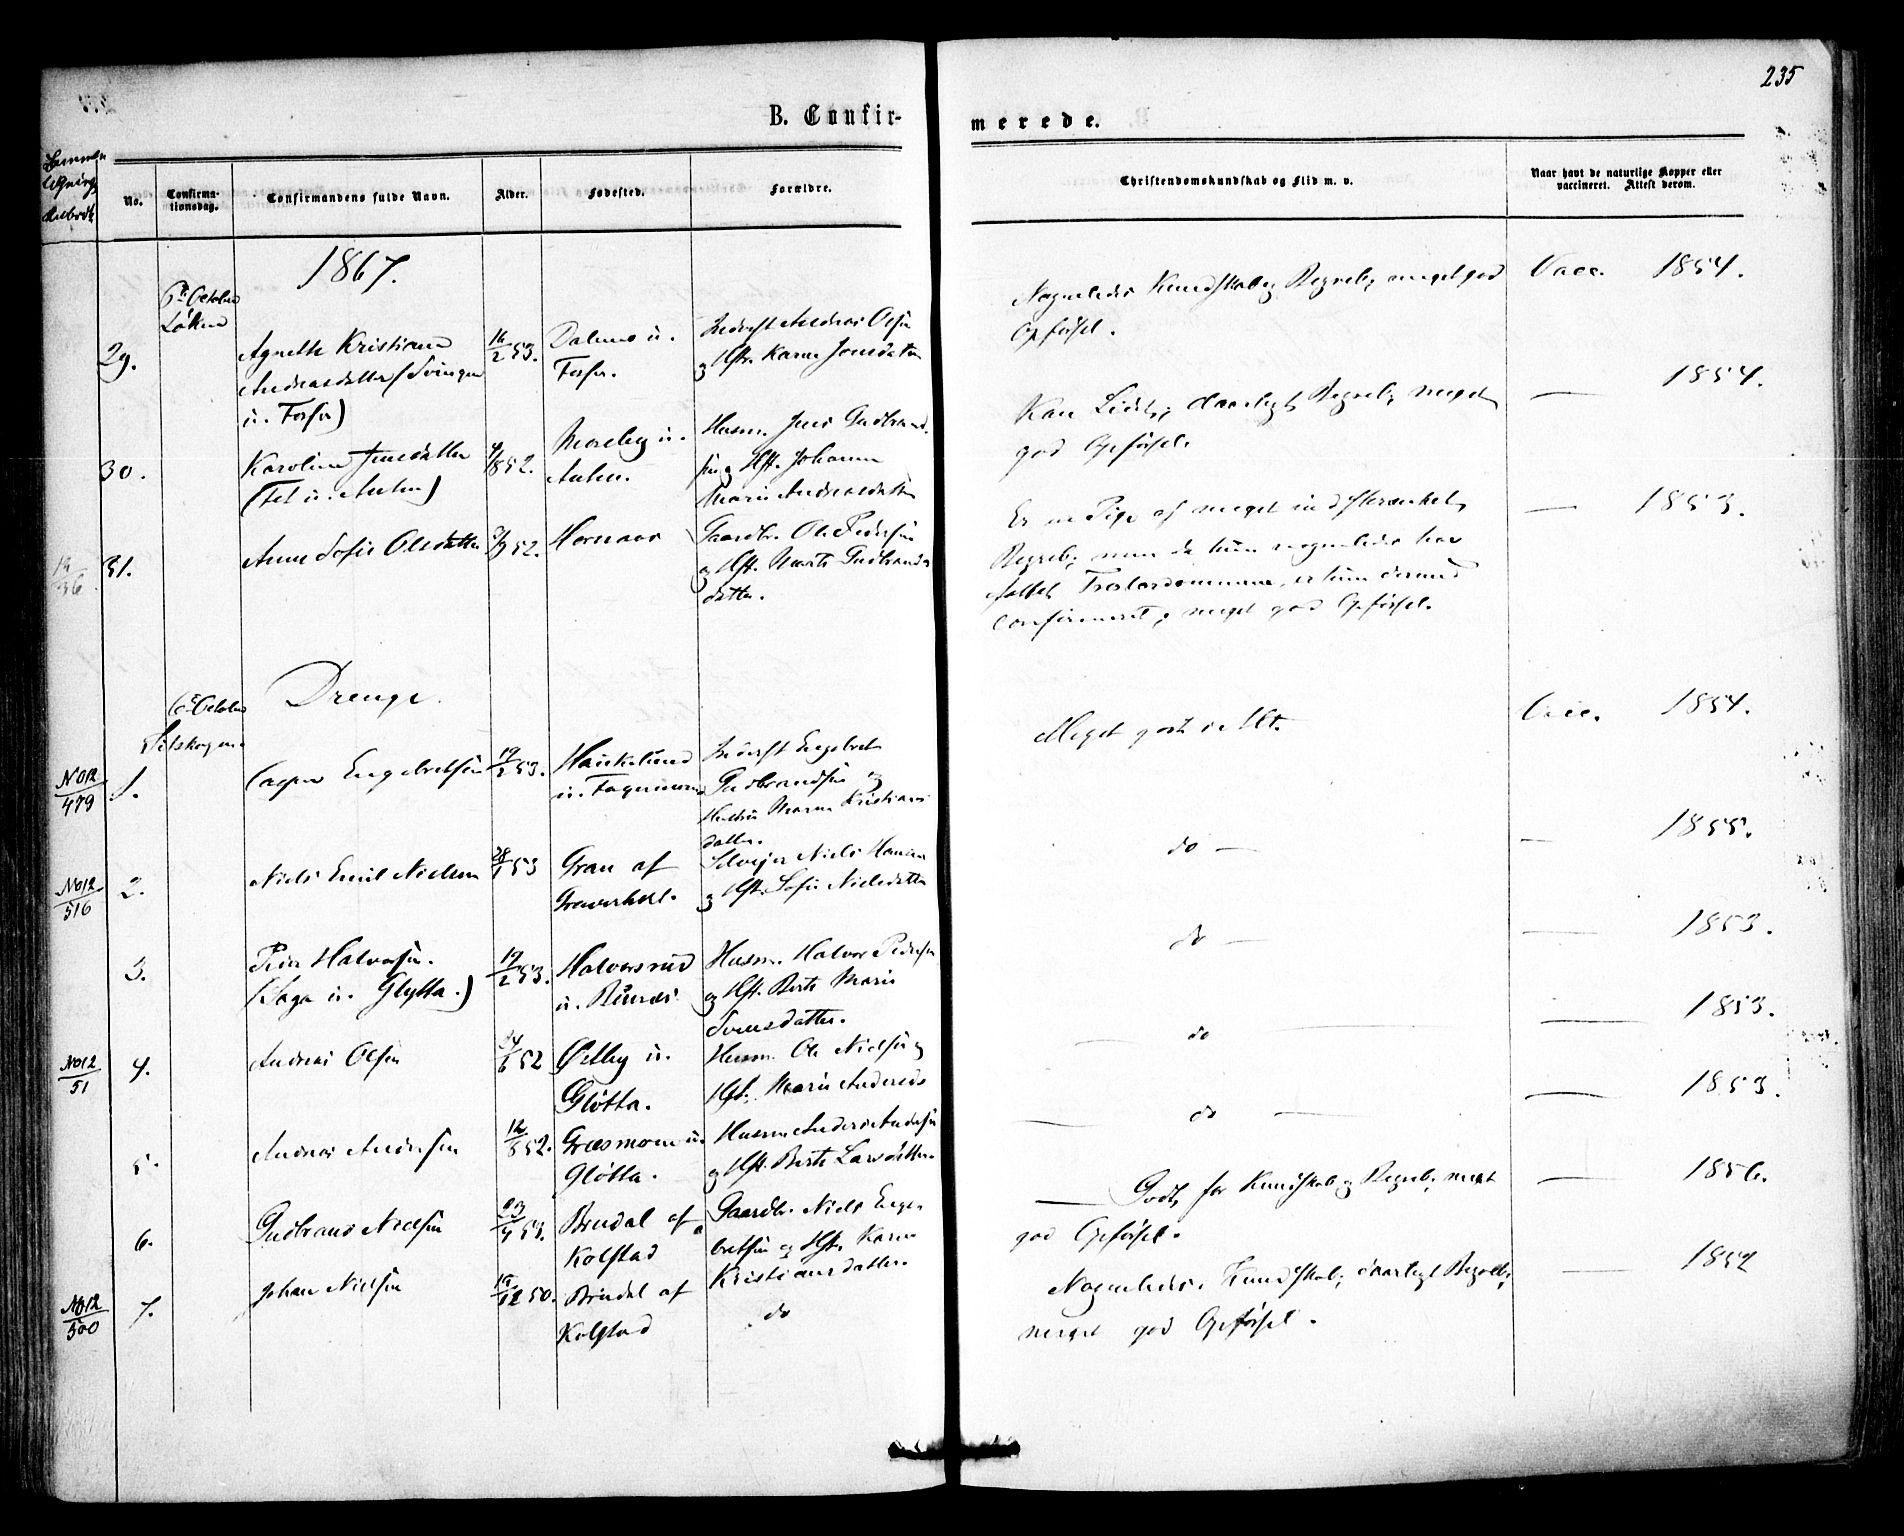 235
B. Confir-
merede.
No.
Confirma-
tionsdag.
Confirmandens fulde Navn.
Alder.
Fødested.
Forældre.
Christendomskundskab og Flid m. v.
Naar havt de naturlige Kopper eller
vaccineret. Attest derom.
1867.
October
29.
Agnethe Kristiane
Andreasdatter (Svingen
u. Fosser)
16/2 53.
Andreas Olsen
og Hst. Karen Jensdatter
Nogenledes Kundskab og Begreb, meget god
Opførsel.
Vacc. 1854.
30.
Karoline Jensdatter
4/8 52.
Husm. Jens Gudbrand-
sen og Hst. Johanne
Marie Andreasdatter
Kan Lidt, daarligt Begreb, meget
god Opførsel.
1854.
31.
Anne Sofie Olsdatter
52.
Gaardbr. Ole Pedersen
og Hst. Marthe Gudbrands
datter.
Er en Pige af meget indskrænket
Begreb, men da hun nogenledes har
fattet Troslærdommene, er hun dermed
confirmeret, meget god Opførsel.
1853.
Drenge.
October
Setskogen
No 12/479
1.
Casper Engebretsen
19/2 53.
Engebret
Gudbrandsen og
Hustru Maren Kristians
datter.
Meget godt i Alt.
Vacc. 1854.
No 12/516
2.
Niels Emil Nielsen
28/1 53
Gran af
Selveier Niels Hansen
og Hst. Sofie Nielsdatter
do
1855.
3.
Peder Halvorsen.
(Haga u. Glytta.)
19/2 53.
Halvorsrud
u. Bunes
Husm. Halvor Pedersen
og Hst. Berte Marie
Svensdatter.
do
1853.
No 12/51
4.
Andreas Olsen
24/6 52
u.
Gløtta.
Husm. Ole Nielsen og
Hst. Marie Andersd
do
1853.
5.
Andreas Andersen
12/8 52.
Græsmoen u.
Gløtta.
Husm. Anders Andersen
og Hst. Berte Larsdatter.
do
1853.
6.
Gudbrand Nielsen
53.
Bredal af
Kolstad
Gaardbr. Niels Enge-
bretsen og Hst. Karen
Kristiansdatter.
Godt, for Kundskab og Begreb, meget
god Opførsel.
1856.
No 12/500
7.
Johan Nielsen
19/12 50.
Bredal af
Kolstad
do
Nogenledes Kundskab, daarligt Begreb,
meget god Opførsel.
1852